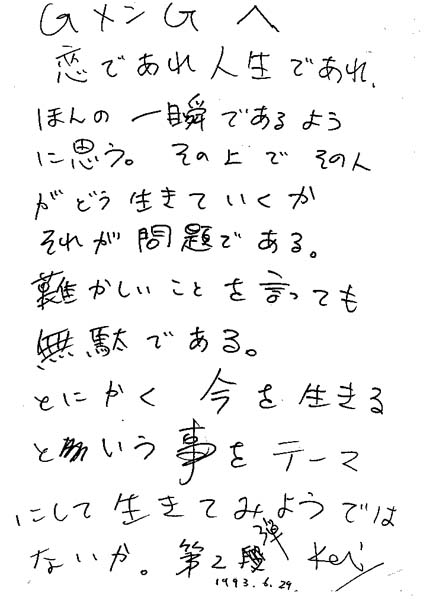 GメンG へ
恋であれ人生であれ、
ほんの一瞬であるよう
に思う。その上でその人
がどう生きていくか
それが問題である。
難かしいことを言っても
無駄である。
とにかく 今を生きる
という事をテーマ
にして生きてみようでは
ないか。第2弾 Kei
1993.6.29.